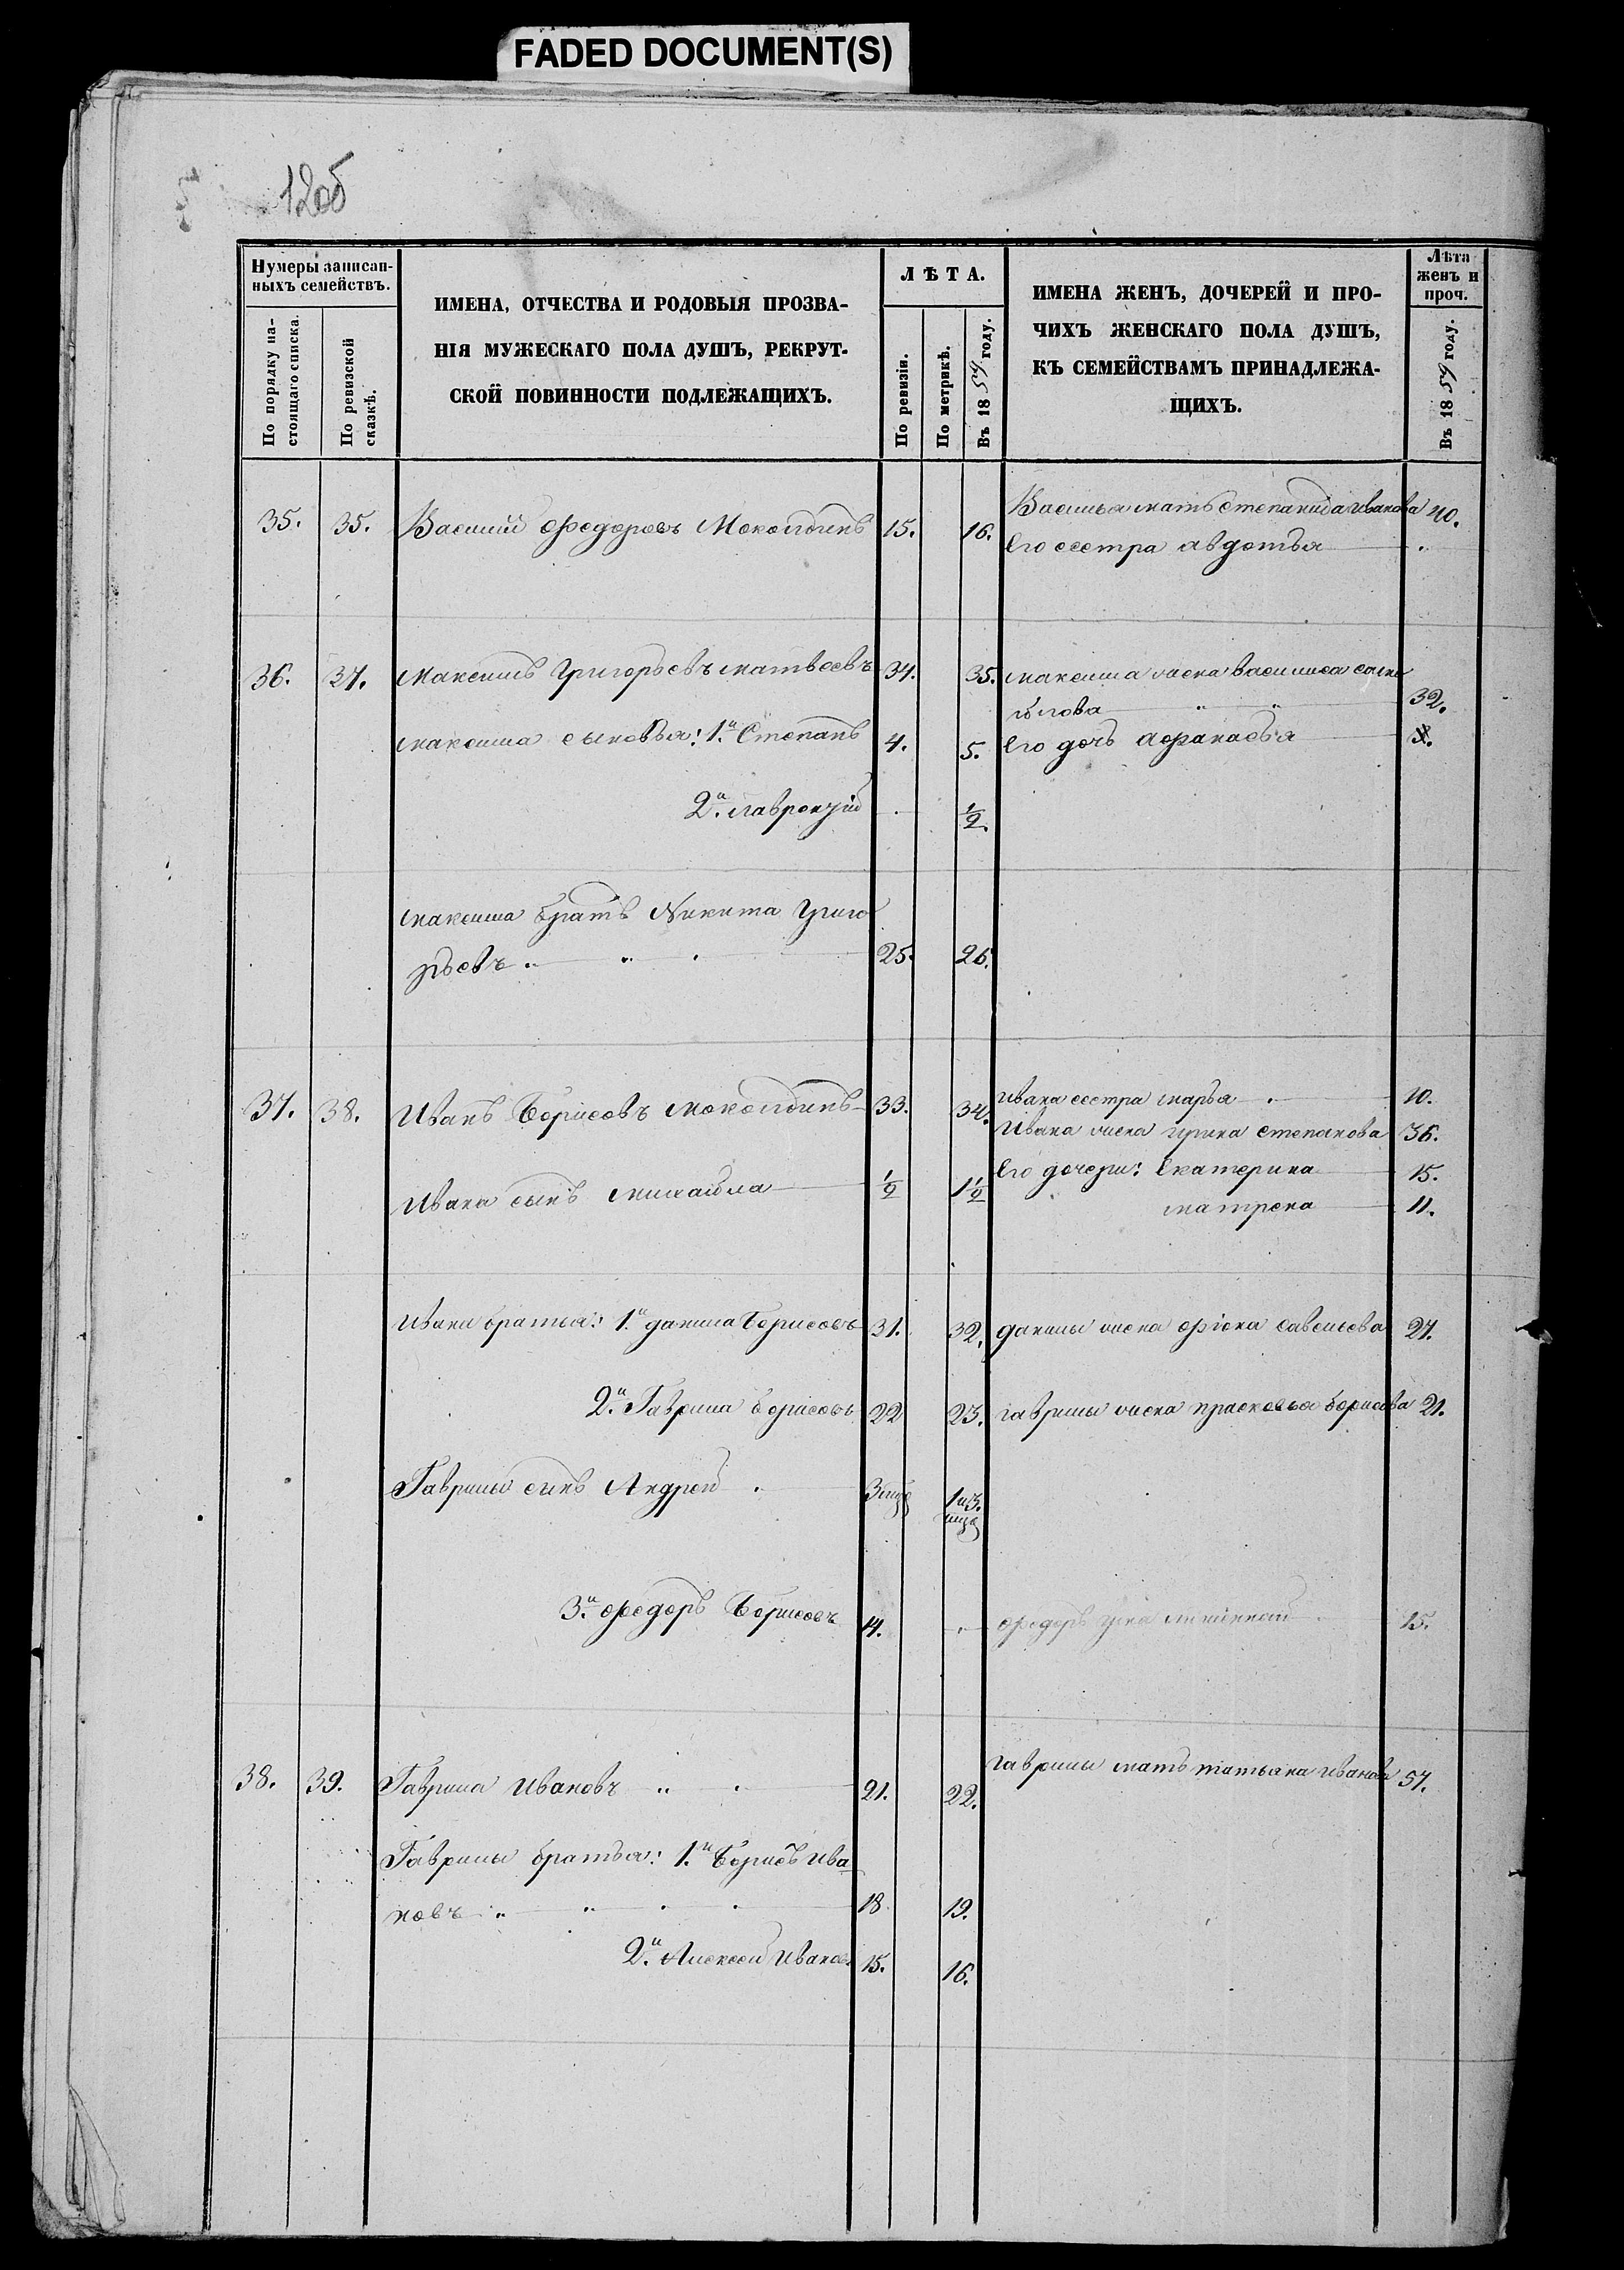 FADED DOCUMENT(S)
12об
Нумеры записан-
ныхъ семействъ.
По порядку на-
стоящаго списка.
По ревизской
сказкѣ.
ИМЕНА, ОТЧЕСТВА И РОДОВЫЯ ПРОЗВА-
НІЯ МУЖЕСКАГО ПОЛА ДУШЪ, РЕКРУТ-
СКОЙ ПОВИННОСТИ ПОДЛЕЖАЩИХЪ.
ЛѢТА.
По ревизіи.
По метрикѣ.
Въ 1859 году.
ИМЕНА ЖЕНЪ, ДОЧЕРЕЙ И ПРО-
ЧИХЪ ЖЕНСКАГО ПОЛА ДУШЪ,
КЪ СЕМЕЙСТВАМЪ ПРИНАДЛЕЖА-
ЩИХЪ.
Лѣта
женъ и
проч.
Въ 1859 году.
35. 35. Василий Федоровъ 15. 16. Васильа мать Степанида Иванова 40.
Его сестра авдотьа
36. 37. Максимъ Григорьевъ матвѣевъ 34. 35. максима жена василиса
32.
максима сыновьа: 1й Степанъ 4. 5. Его дочь афанасьа
2й лаврентій ½.
максима братъ Никита Григо
рьевъ 25. 26.
37. 38. Иванъ Борисовъ 33. 34. ивана сестра марьа 10.
Ивана жена ирина степанова 36.
Ивана сынъ михайла ½ 1½ Его дочери: Екатерина 15.
матрена 11.
Ивана братьа: 1й данила Борисовъ 31. 32. данилы жена савельева 27.
2й Гаврила борисовъ 22 23. гаврилы жена прасковьа борисова 21.
Гаврилы сынъ Андрей 3 1 и 3.
3й федоръ Борисовъ 14. федоръ 15.
38. 39. Гаврила Ивановъ 21. 22. гаврилы мать татьяна иванова 57.
Гаврилы братьа: 1й Борисъ Ива
новъ 18 19.
2й Алексей Ивановъ 15. 16.